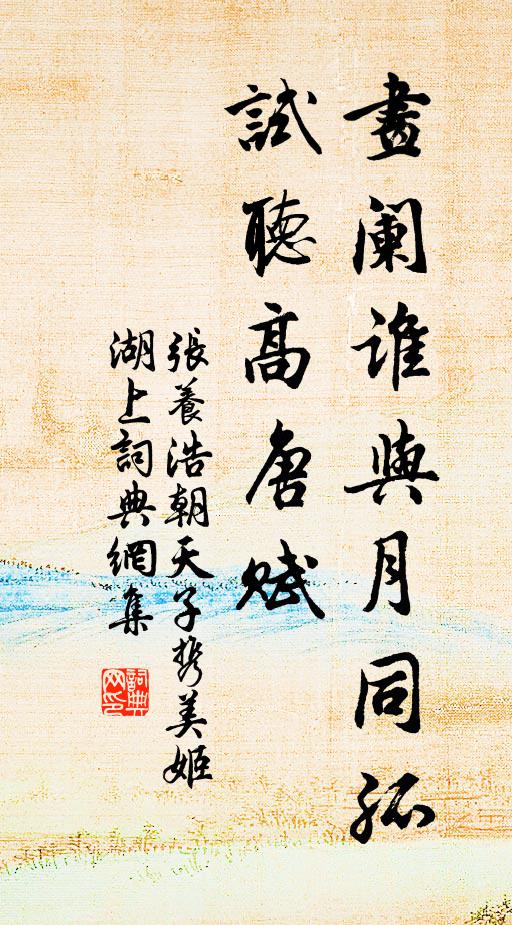 畫阑誰與月同孤
試聽高唐賦
張養浩朝天子攜美姬
湖上詞典網集
詞典网印